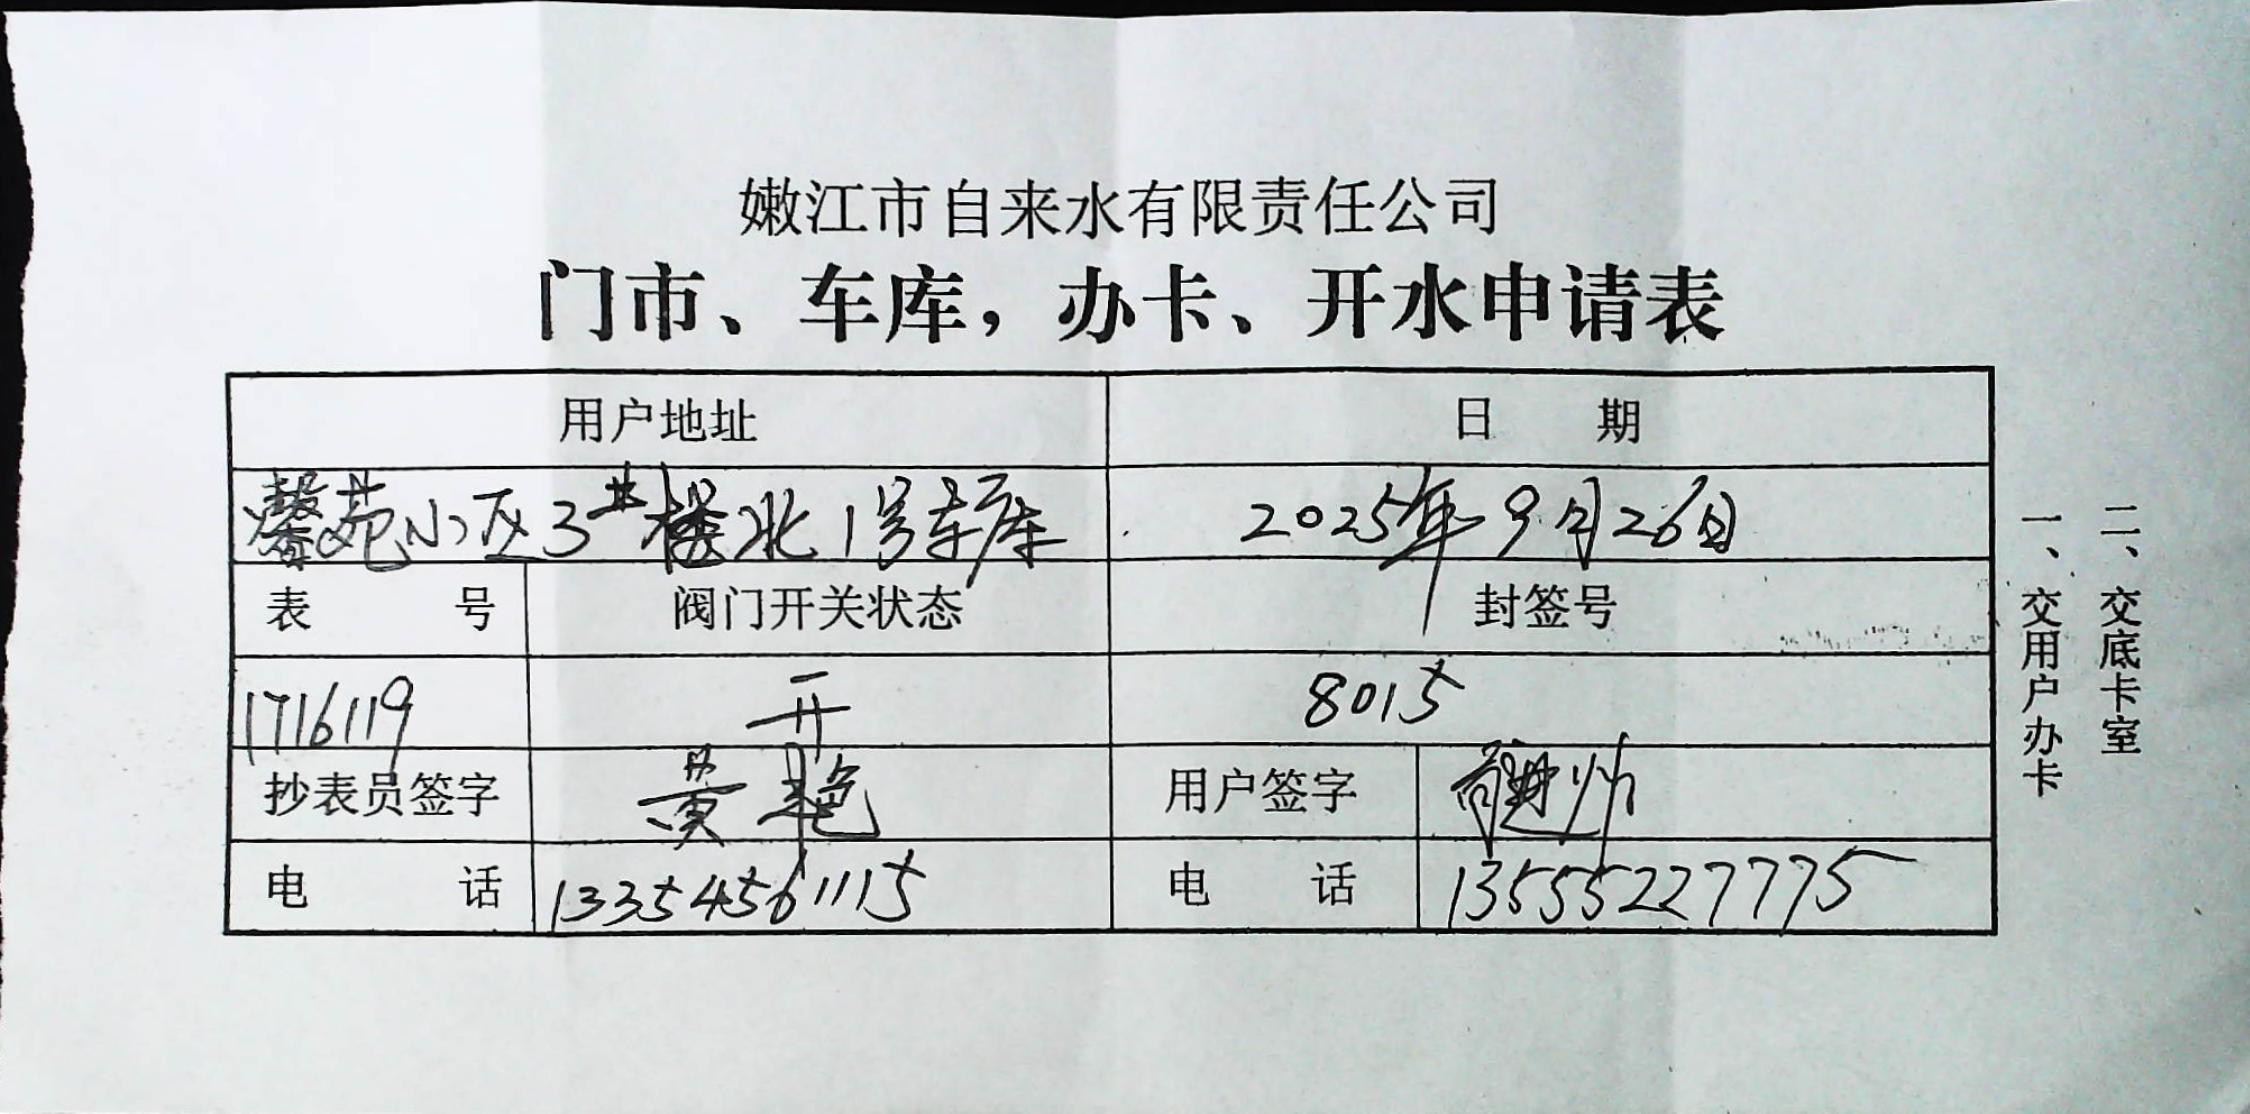 嫩江市自来水有限责任公司
门市、车库，办卡、开水申请表
用户地址 日 期
馨苑小区3#楼北1号车库 2025年9月26日
表 号 阀门开关状态 封签号
1716119 开 8015
抄表员签字 黄艳 用户签字
电 话 13354561115 电 话 13555227775
一、交用户办卡
二、交底卡室